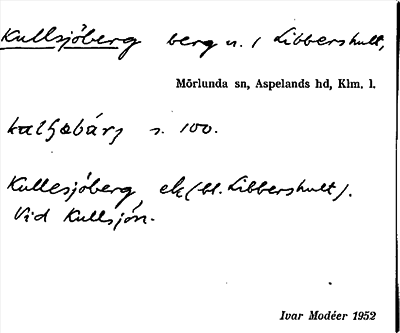 Kullsjöberg berg n. / Libbershult,
Mörlunda sn, Aspelands hd, Klm. l.
s. 100.
Kullesjöberg, ek (bl. Libbershult).
Vid Kullsjön.
Ivar Modéer 1952